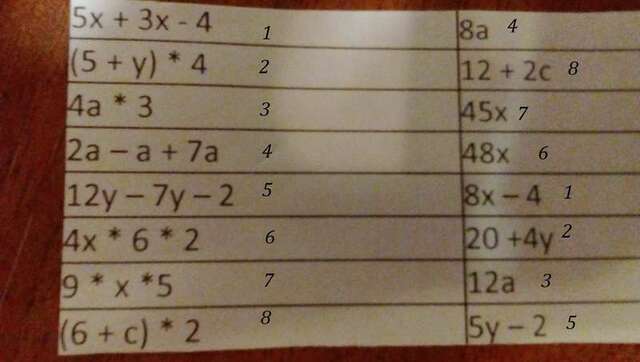 5x + 3x - 4 1 8a 4
(5 + y) * 4 2 12 + 2c 8
4a * 3 3 45x 7
2a – a + 7a 4 48x 6
12y – 7y – 2 5 8x – 4 1
4x * 6 * 2 6 20 +4y 2
9 * x *5 7 12a 3
(6 + c) * 2 8 5y – 2 5